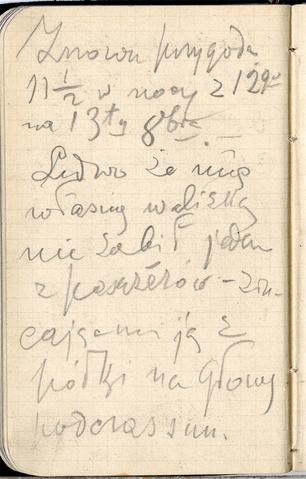 Znowu przygoda
11 1/2 w nocy z 12go
na 13ty 8bre
Ledwo że mię
własną walizką
nie zabił jeden
z pasażerów – zru-
cając mi ją z
półki na głowę
podczas snu.